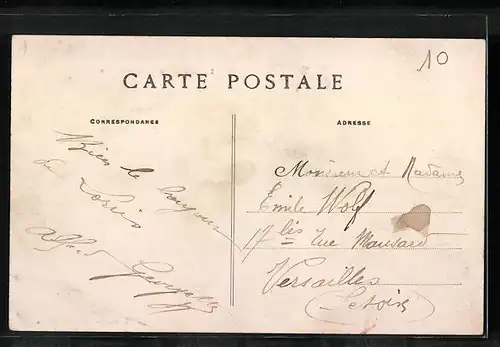 10
CARTE POSTALE
CORRESPONDANCE
ADRESSE
Bien le bonjour
de
Monsieur et Madame
Emile Wolf
17 bis rue Mansard
Versailles